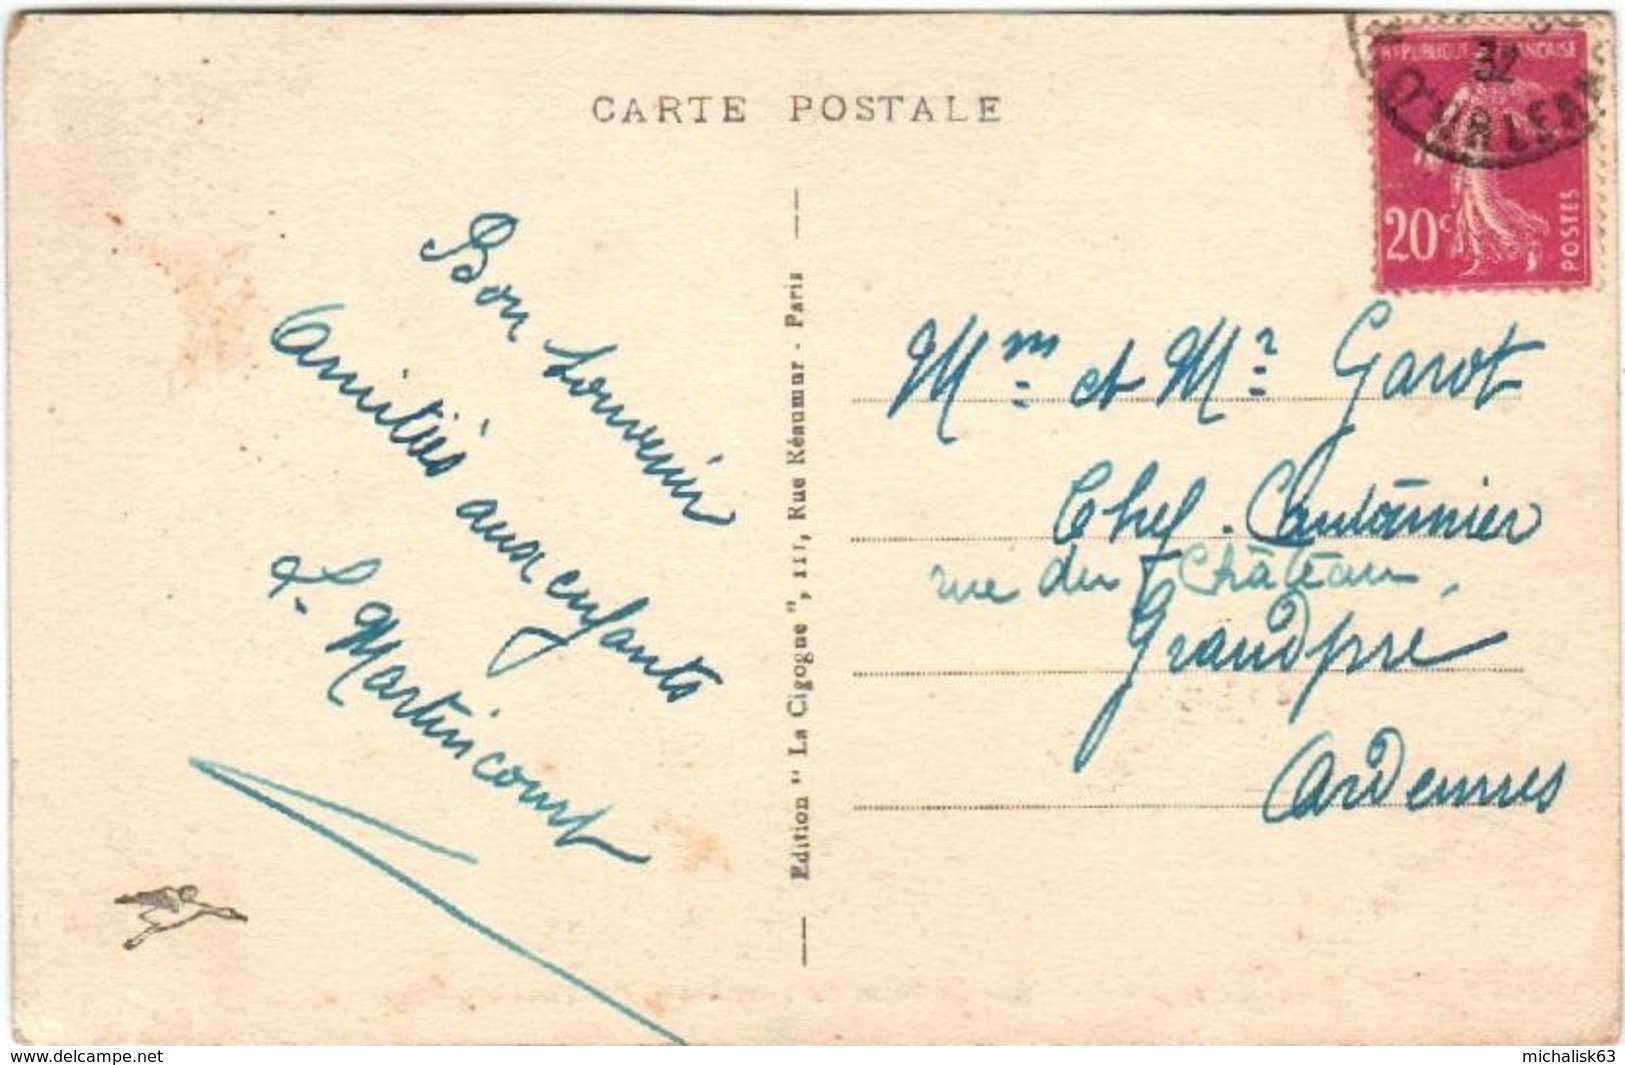 CARTE POSTALE
REPUBLIQUE FRANÇAISE
32
20c
POSTES
Bon Souvenir
Amitiés aux enfants
Martincourt
Edition " La Cigogne ", 111, Rue Réaumur - Paris
Mme et Mr Garot
Chef Cantonnier
rue du Château,
Grandpré
Ardennes
www.delcampe.net
michalisk63